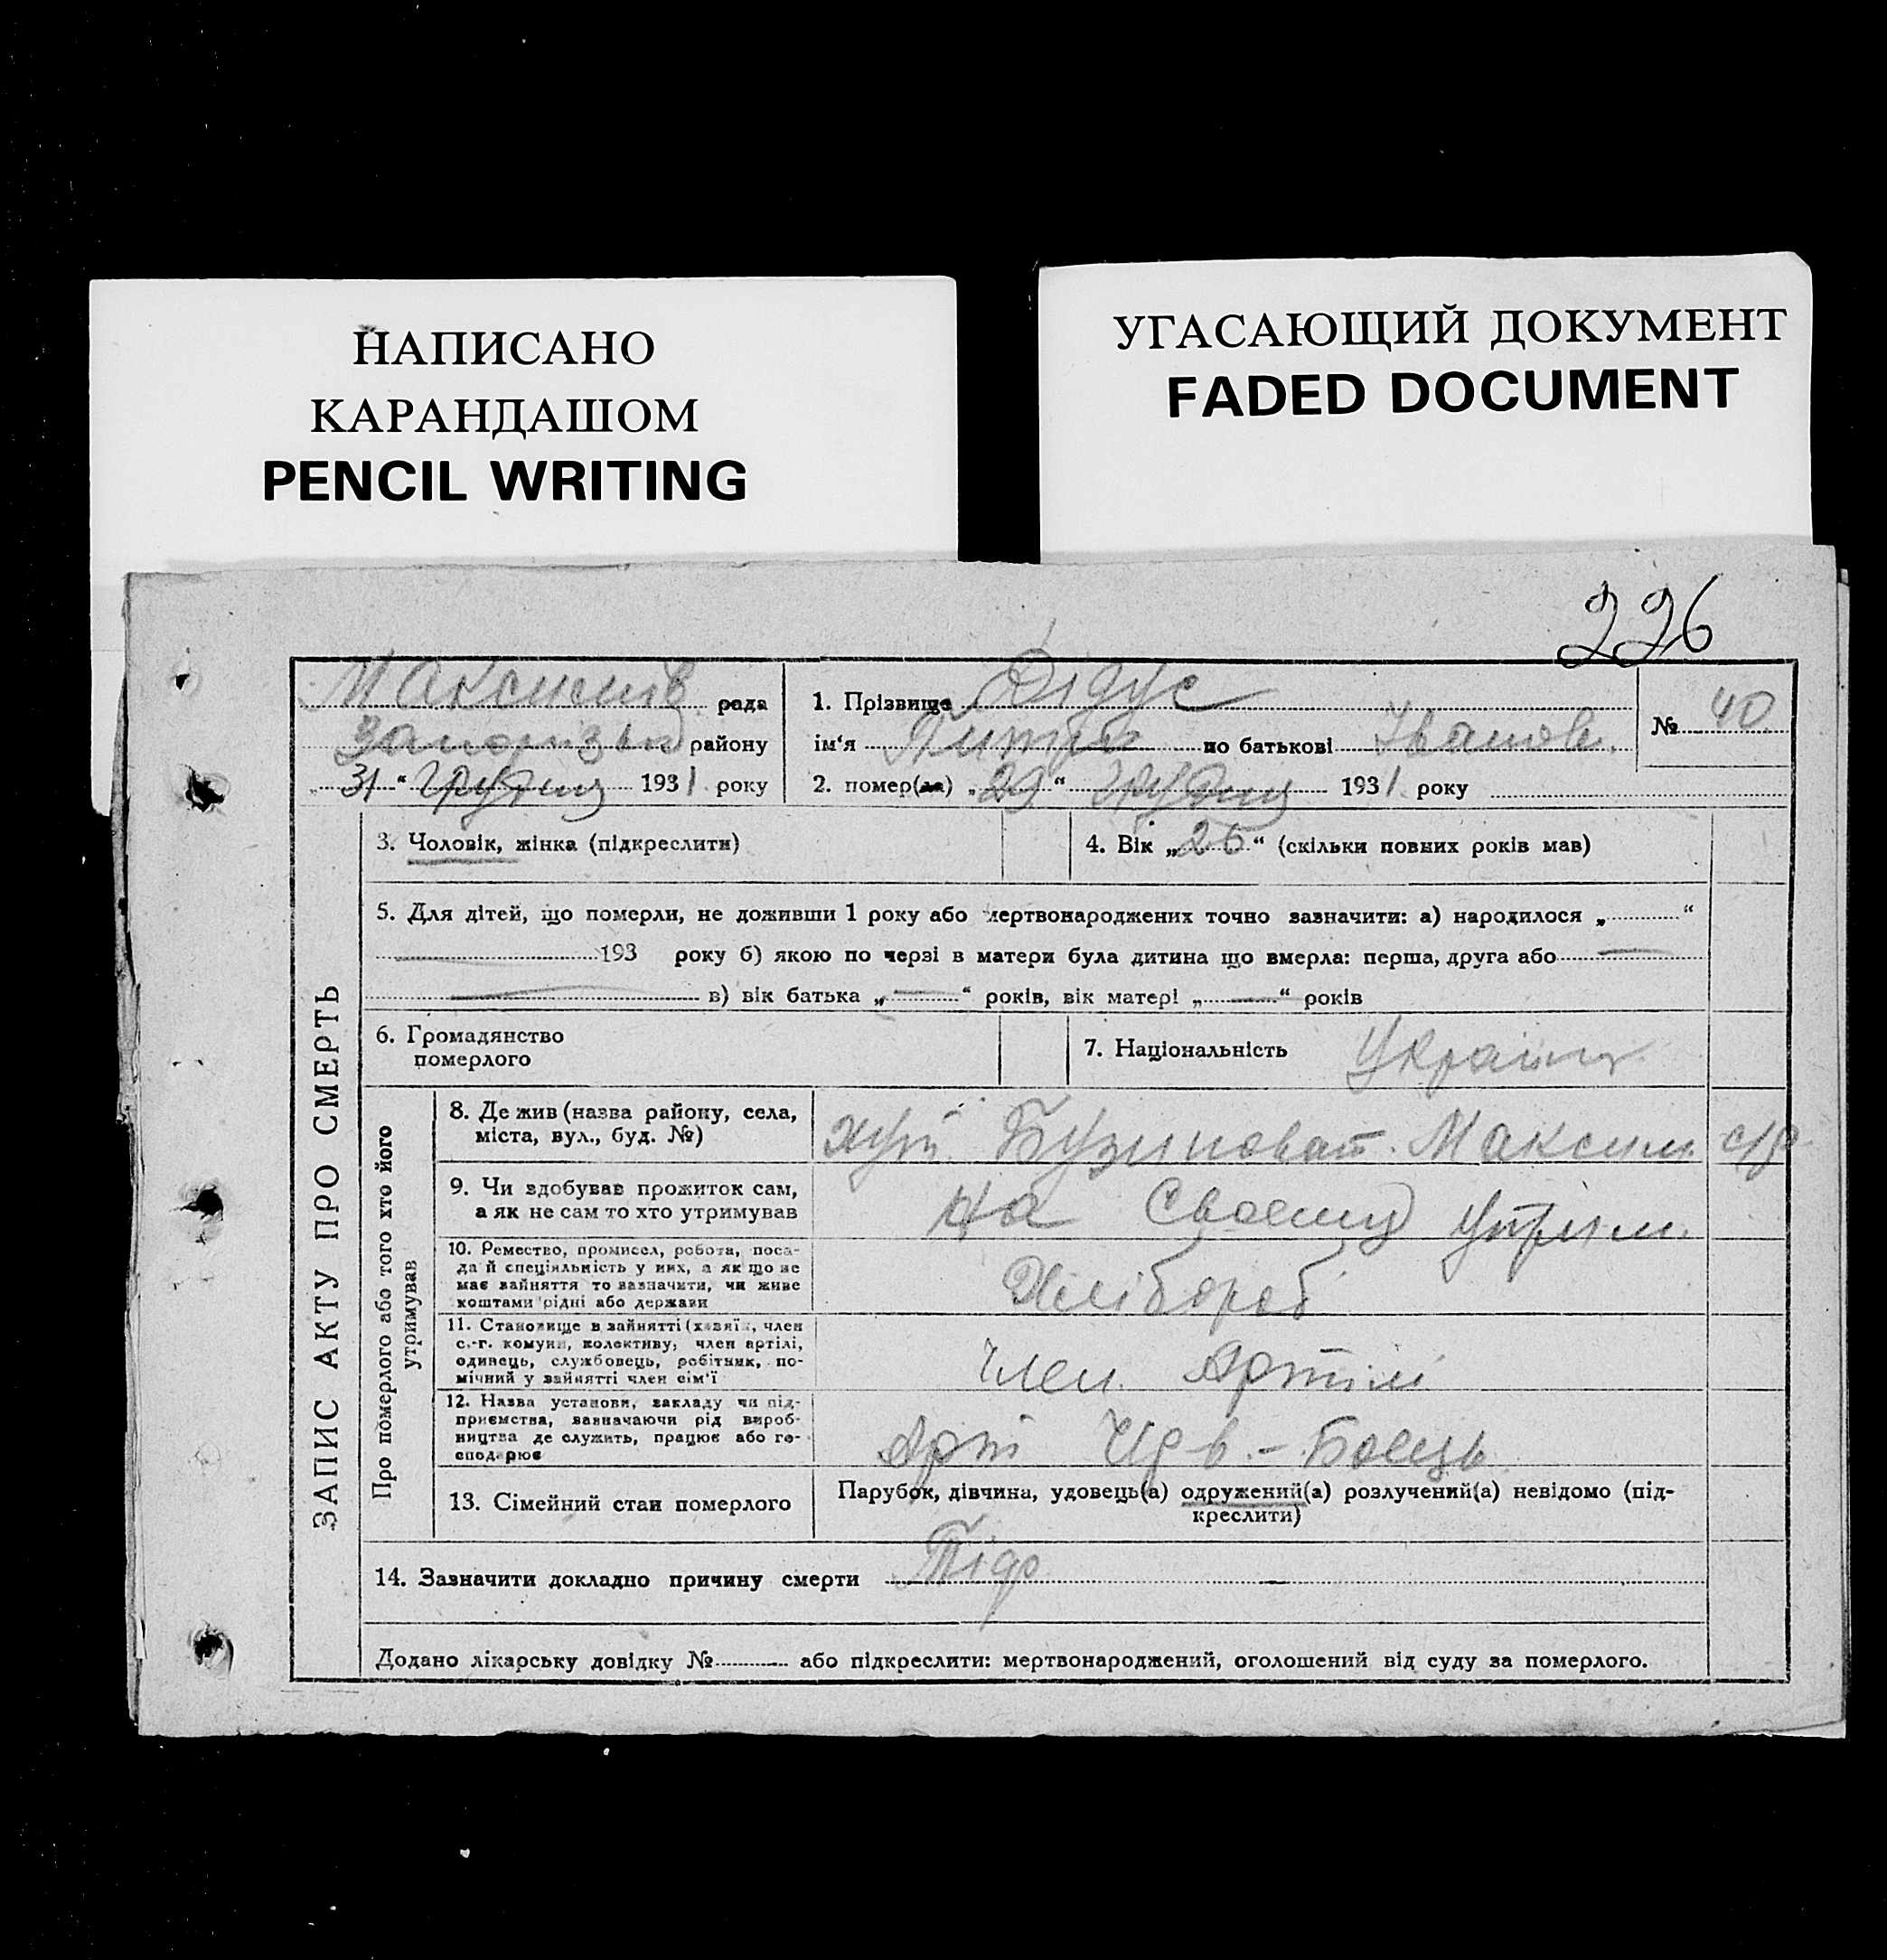 НАПИСАНО
КАРАНДАШОМ
PENCIL WRITING
УГАСАЮЩИЙ ДОКУМЕНТ
FADED DOCUMENT
226
рада
Запорізьк району
„31“ Грудня 1931 року
1. Прізвище Дідус
ім‘я по батькові Іванов.
2. помер(ла) „29“ Грудня 1931 року
№ 40
ЗАПИС АКТУ ПРО СМЕРТЬ
3. Чоловік, жінка (підкреслити)
4. Вік „26“ (скільки повних років мав)
5. Для дітей, що померли, не доживши 1 року або мертвонароджених точно зазначити: а) народилося „ “
193 року б) якою по черзі в матери була дитина що вмерла: перша, друга або —
— в) вік батька „—“ років, вік матері „—“ років
6. Громадянство
померлого
7. Національність Україн
Про померлого або того хто його
утримував
8. Де жив (назва району, села,
міста, вул., буд. №)
хут. Бузиноват. Максим. с/р
9. Чи здобував прожиток сам,
а як не сам то хто утримував
На Своєму утрим.
10. Ремество, промисел, робота, поса-
да й спеціяльність у них, а як що не
має зайняття то зазначити, чи живе
коштами рідні або держави
Хлібороб
11. Становище в зайнятті (хазяїн, член
с.-г. комуни, колективу, член артілі,
одинець, службовець, робітник, по-
мічний у зайнятті член сім‘ї
Член Артілі
12. Назва установи, закладу чи під-
приємства, зазначаючи рід вироб-
ництва де служить, працює або го-
сподарює
Арт Боець
13. Сімейний стан померлого
Парубок, дівчина, удовець(а) одружений(а) розлучений(а) невідомо (під-
креслити)
14. Зазначити докладно причину смерти
Додано лікарську довідку № або підкреслити: мертвонароджений, оголошений від суду за померлого.